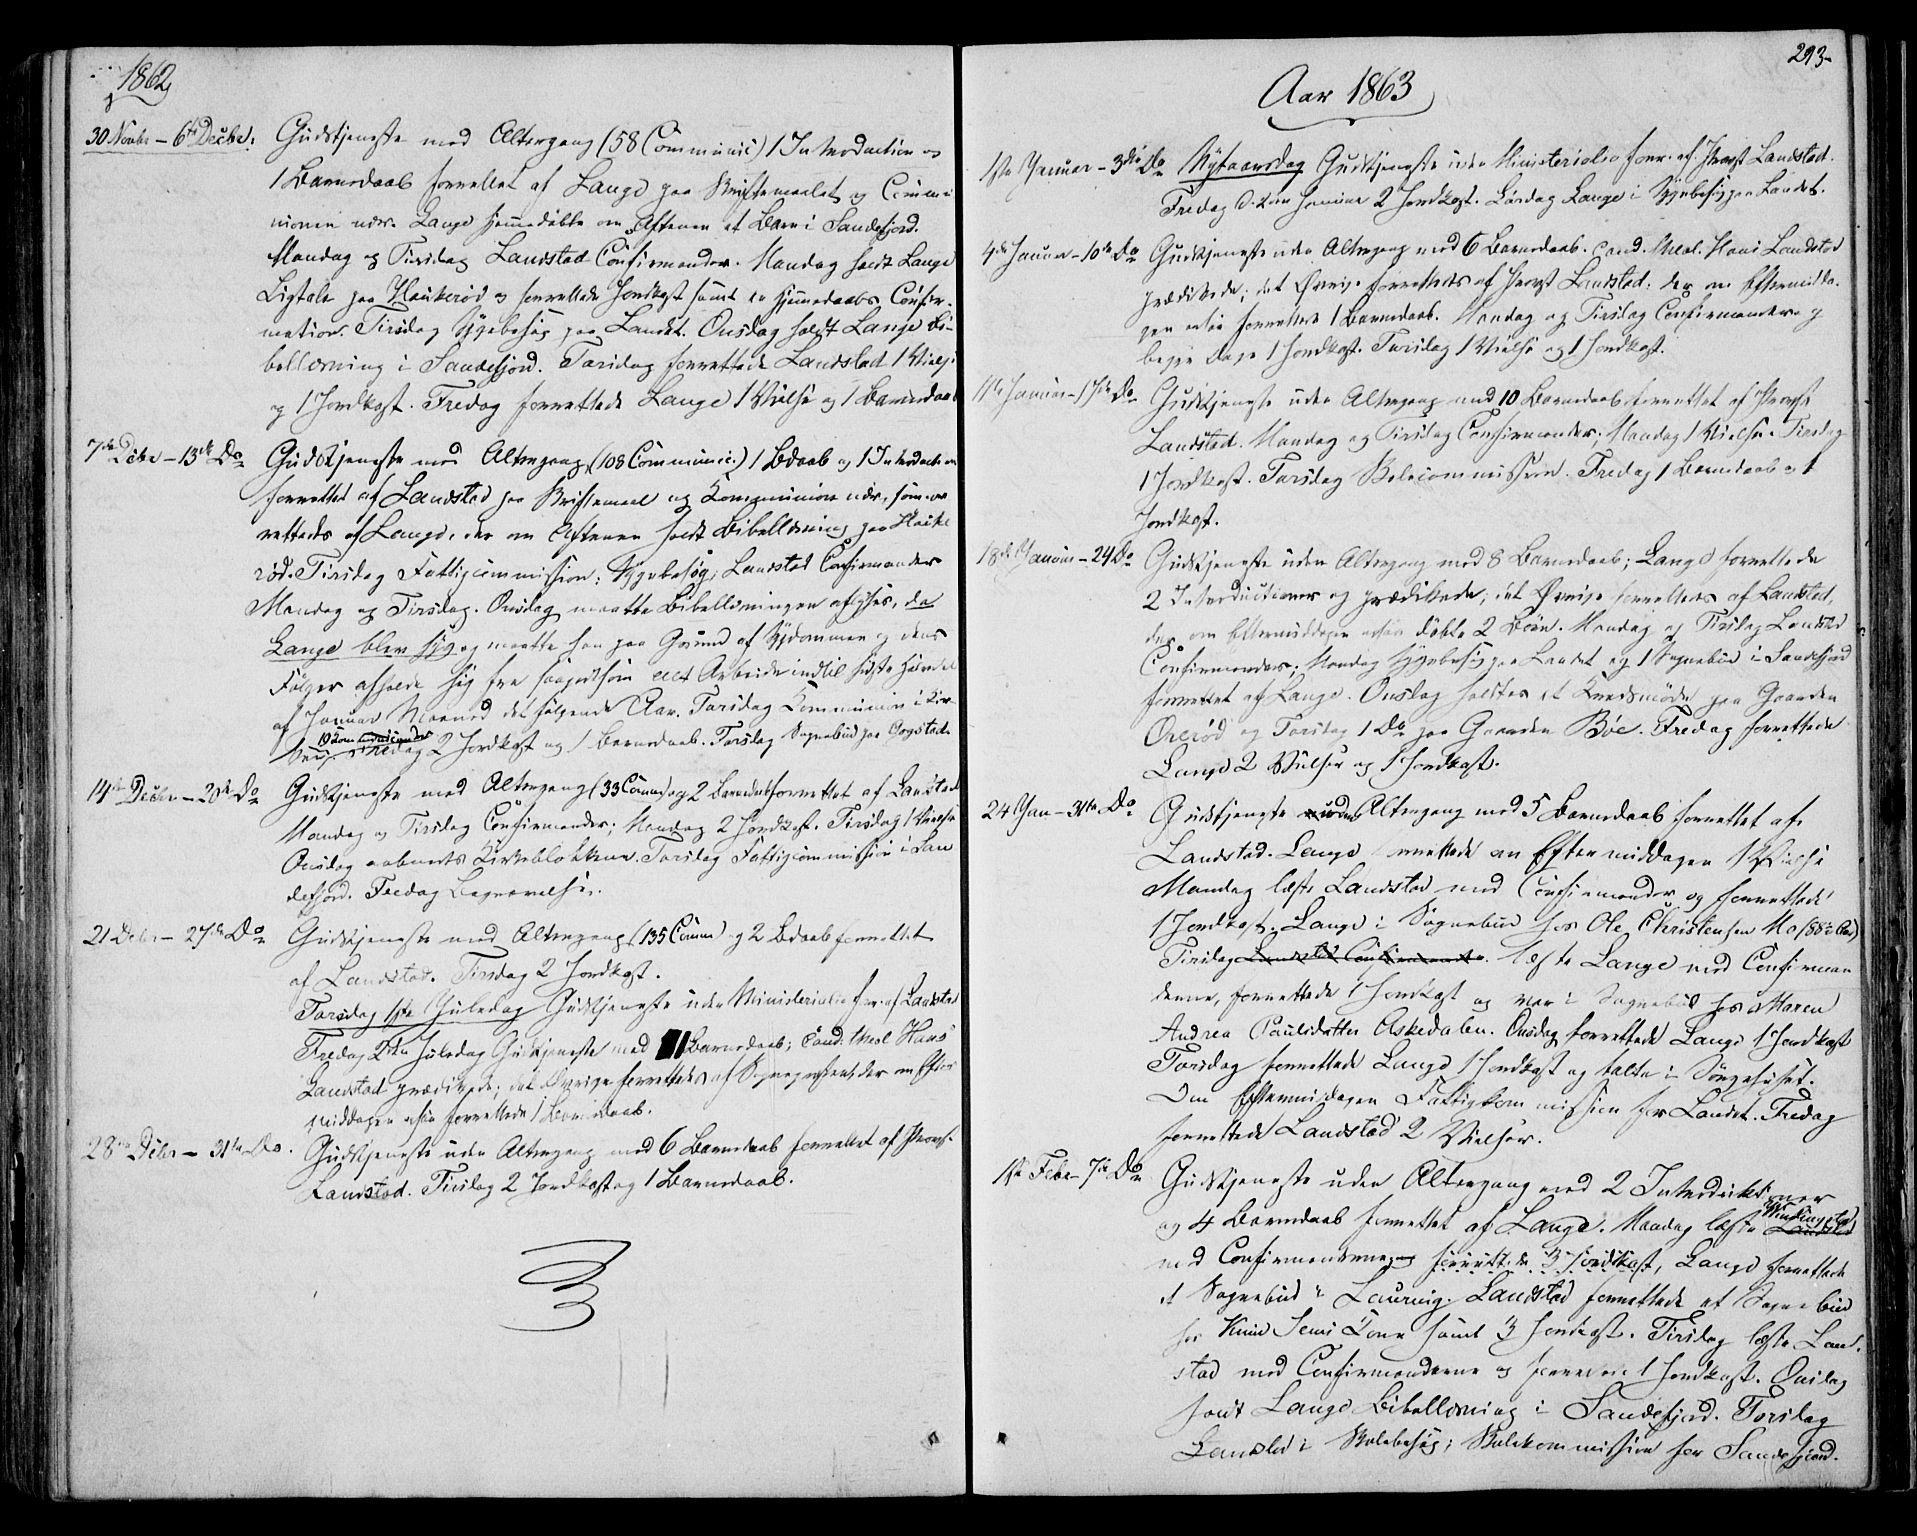 1862
30 Novbr – 6te Decbr. Gudstjeneste med Altergang (58 Communic) 1 Introduction og
1 Barnedaab forrettet af Lange paa Skriftemaalet og Commu
nionen nær. Lange hjemmedøbte om Aftenen et Barn i Sandefjord.
Mandag og Tirsdag Landstad Confirmander. Mandag holdt Lange
Ligtale paa Haukerød og forrettede Jordkast samt en Hjemmedaabs Confir-
mation. Tirsdag Sygebesøg paa Landet. Onsdag holdt Lange Bi-
bellæsning i Sandefjord. Torsdag forrettede Landstad 1 Vielse
og 1 Jordkast. Fredag forrettede Lange 1 Vielse og 1 Barnedaab
7de Decbr – 13de Do Gudstjeneste med Altergang (108 Communic.) 1 Bdaab og 1 Introduction
forrettet af Landstad paa Skriftemaal og Kommunion nær, som for
rettedes af Lange, der om Aftenen holdt Bibellæsning paa Hauke
rød. Tirsdag Fattigcommission; Sygebesøg; Landstad Confirmander
Mandag og Tirsdag. Onsdag maatte Bibellæsningen aflyses, da
Lange blev syg og maatte han paa Grund af Sygdommen og dens
Følger afholde sig fra saagodtsom alt Arbeide indtil sidste Halvdel
af Januar Maaned det følgende Aar. Torsdag Kommunion i Kir-
10 Kommunicander
Fredag 2 Jordkast og 1 Barnedaab. Torsdag Sognebud paa Gogstad
14de Decbr – 20de Do Gudstjeneste med Altergang (33 Comm) og 2 Barnedaab forrettet af Landstad
Mandag og Tirsdag Confirmander; Mandag 2 Jordkast. Tirsdag 1 Vielse
Onsdag aabnedes Kirkeblokkene. Torsdag Fattigcommission i San
defjord. Fredag Begravelse.
21 Decbr – 27de Do Gudstjeneste med Altergang (135 Comm) og 2 Bdaab forrettet
af Landstad. Tirsdag 2 Jordkast.
Torsdag 1ste Juledag Gudstjeneste uden Ministerialia forr. af Landstad
Fredag 2den Juledag Gudstjeneste med 11 Barnedaab; Cand. theol Hans
Landstad prædikede; det Øvrige forrettedes af Sognepresten, der om Efter
middagen ogsaa forrettede 1 Barnedaab.
28de Decbr – 31te Do. Gudstjeneste uden Altergang med 6 Barnedaab forrettet af Provst
Landstad. Tirsdag 2 Jordkast og 1 Barnedaab.
293.
Aar 1863
1ste Januar – 3die Do Nytaarsdag Gudstjeneste uden Ministerialia forr. af Provst Landstad.
Fredag d. 2den Januar 2 Jordkast. Lørdag Lange i Sygebesøg paa Landet.
4de Januar – 10de Do Gudstjeneste uden Altergang med 6 Barnedaab. Cand. theol. Hans Landstad
prædikede; det Øvrige forrettedes af Provst Landstad, der om Eftermidda-
gen ogsaa forrettede 1 Barnedaab. Mandag og Tirsdag Confirmander og
begge Dage 1 Jordkast. Torsdag 1 Vielse og 1 Jordkast.
11te Januar – 17de Do Gudstjeneste uden Altergang med 10 Barnedaab forrettet af Provst
Landstad. Mandag og Tirsdag Confirmander; Mandag 1 Vielse. Tirsdag
1 Jordkast. Torsdag Skolecommission. Fredag 1 Barnedaab og 1
Jordkast.
18de Januar – 24 Do Gudstjeneste uden Altergang med 8 Barnedaab; Lange forrettede
2 Introductioner og prædikede; det Øvrige forrettedes af Landstad,
der om Eftermiddagen ogsaa døbte 2 Børn. Mandag og Tirsdag Landstad
Confirmander; Mandag Sygebesøg paa Landet og 1 Sognebud i Sandefjord
forrettet af Lange. Onsdag holdtes et Kredsmøde paa Gaarden
Orerød og Torsdag 1 Do paa Gaarden Bøe. Fredag forrettede
Lange 2 Vielser og 1 Jordkast.
24 Jan – 31te Do Gudstjeneste uden Altergang med 5 Barnedaab forrettet af
Landstad. Lange forrettede om Eftermiddagen 1 Vielse
Mandag læste Landstad med Confirmander og forrettede
1 Jordkast. Lange i Sognebud hos Ole Christensen Mo (88 Aar)
Tirsdag Landstad Confirmander. læste Lange med Confirman
derne, forrettede 1 Jordkast og var i Sognebud hos Maren
Andrea Paulsdatter Askedalen. Onsdag forrettede Lange 1 Jordkast
Torsdag forrettede Lange 1 Jordkast og talte i Sørgehuset.
Om Eftermiddagen Fattigkommission for Landet. Fredag
forrettede Landstad 2 Vielser.
1ste Febr – 7de Do Gudstjeneste uden Altergang med 2 Introduktioner
og 4 Barnedaab forrettet af Lange. Mandag læste Landstad
med Confirmanderne og forrettede 3 Jordkast, Lange forrettede
et Sognebud i Laurvig. Landstad forrettede et Sognebud
hos samt 3 Jordkast. Tirsdag læste Land-
stad med Confirmanderne og forrettede 1 Jordkast. Onsdag
holdt Lange Bibellæsning i Sandefjord. Torsdag
Landstad i Skolebesøg; Skolekommission for Sandefjord.